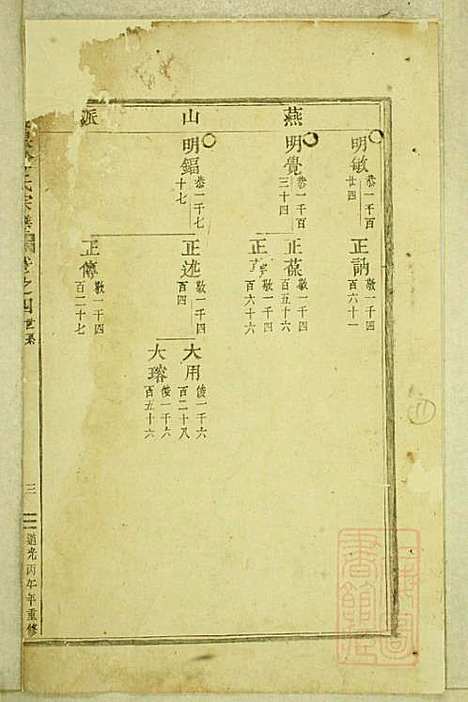 燕山派
明敏 恭一千百廿四
正訥 敬一千四百六十一
明覺 恭一千百三十四
正葆 敬一千四百五十六
正 敬一千四百六十六
明鎦 恭一千七十七
正述 敬一千四百四
大用 後一千六百二十八
大瑢 後一千六百五十六
正傳 敬一千四百二十七
氏宗譜 卷之四 世系
三
道光丙午年重修
11
書